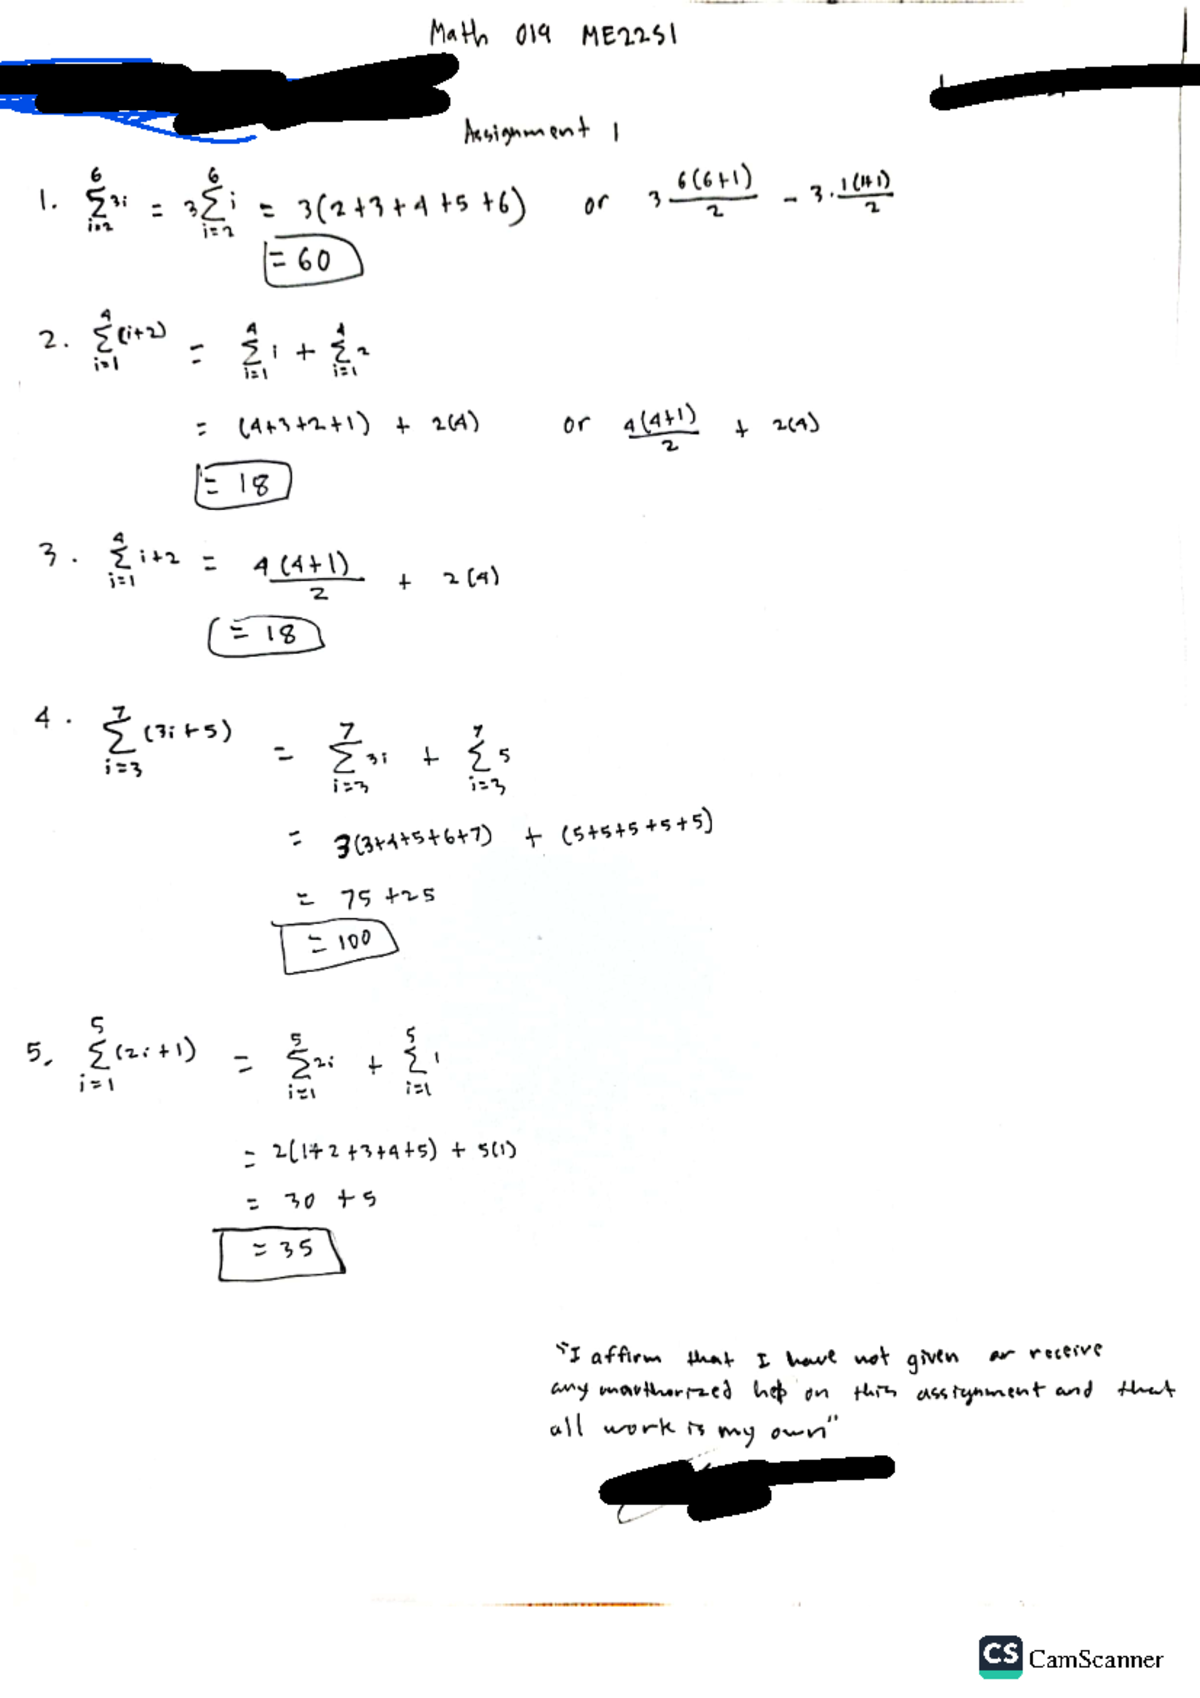 Math 019 ME22S1
Assignment 1
1. 6 Σ i=2 3i = 3 6 Σ i=2 i = 3(2+3+4+5+6) or 3 6(6+1)/2 - 3 · 1(1+1)/2
= 60
2. 4 Σ i=1 (i+2) = 4 Σ i=1 i + 4 Σ i=1 2
= (4+3+2+1) + 2(4) or 4(4+1)/2 + 2(4)
= 18
3. 4 Σ i=1 i+2 = 4(4+1)/2 + 2(4)
= 18
4. 7 Σ i=3 (3i+5) = 7 Σ i=3 3i + 7 Σ i=3 5
= 3(3+4+5+6+7) + (5+5+5+5+5)
= 75+25
= 100
5. 5 Σ i=1 (2i+1) = 5 Σ i=1 2i + 5 Σ i=1 1
= 2(1+2+3+4+5) + 5(1)
= 30 + 5
= 35
"I affirm that I have not given or receive
any unauthorized help on this assignment and that
all work is my own"
CS CamScanner